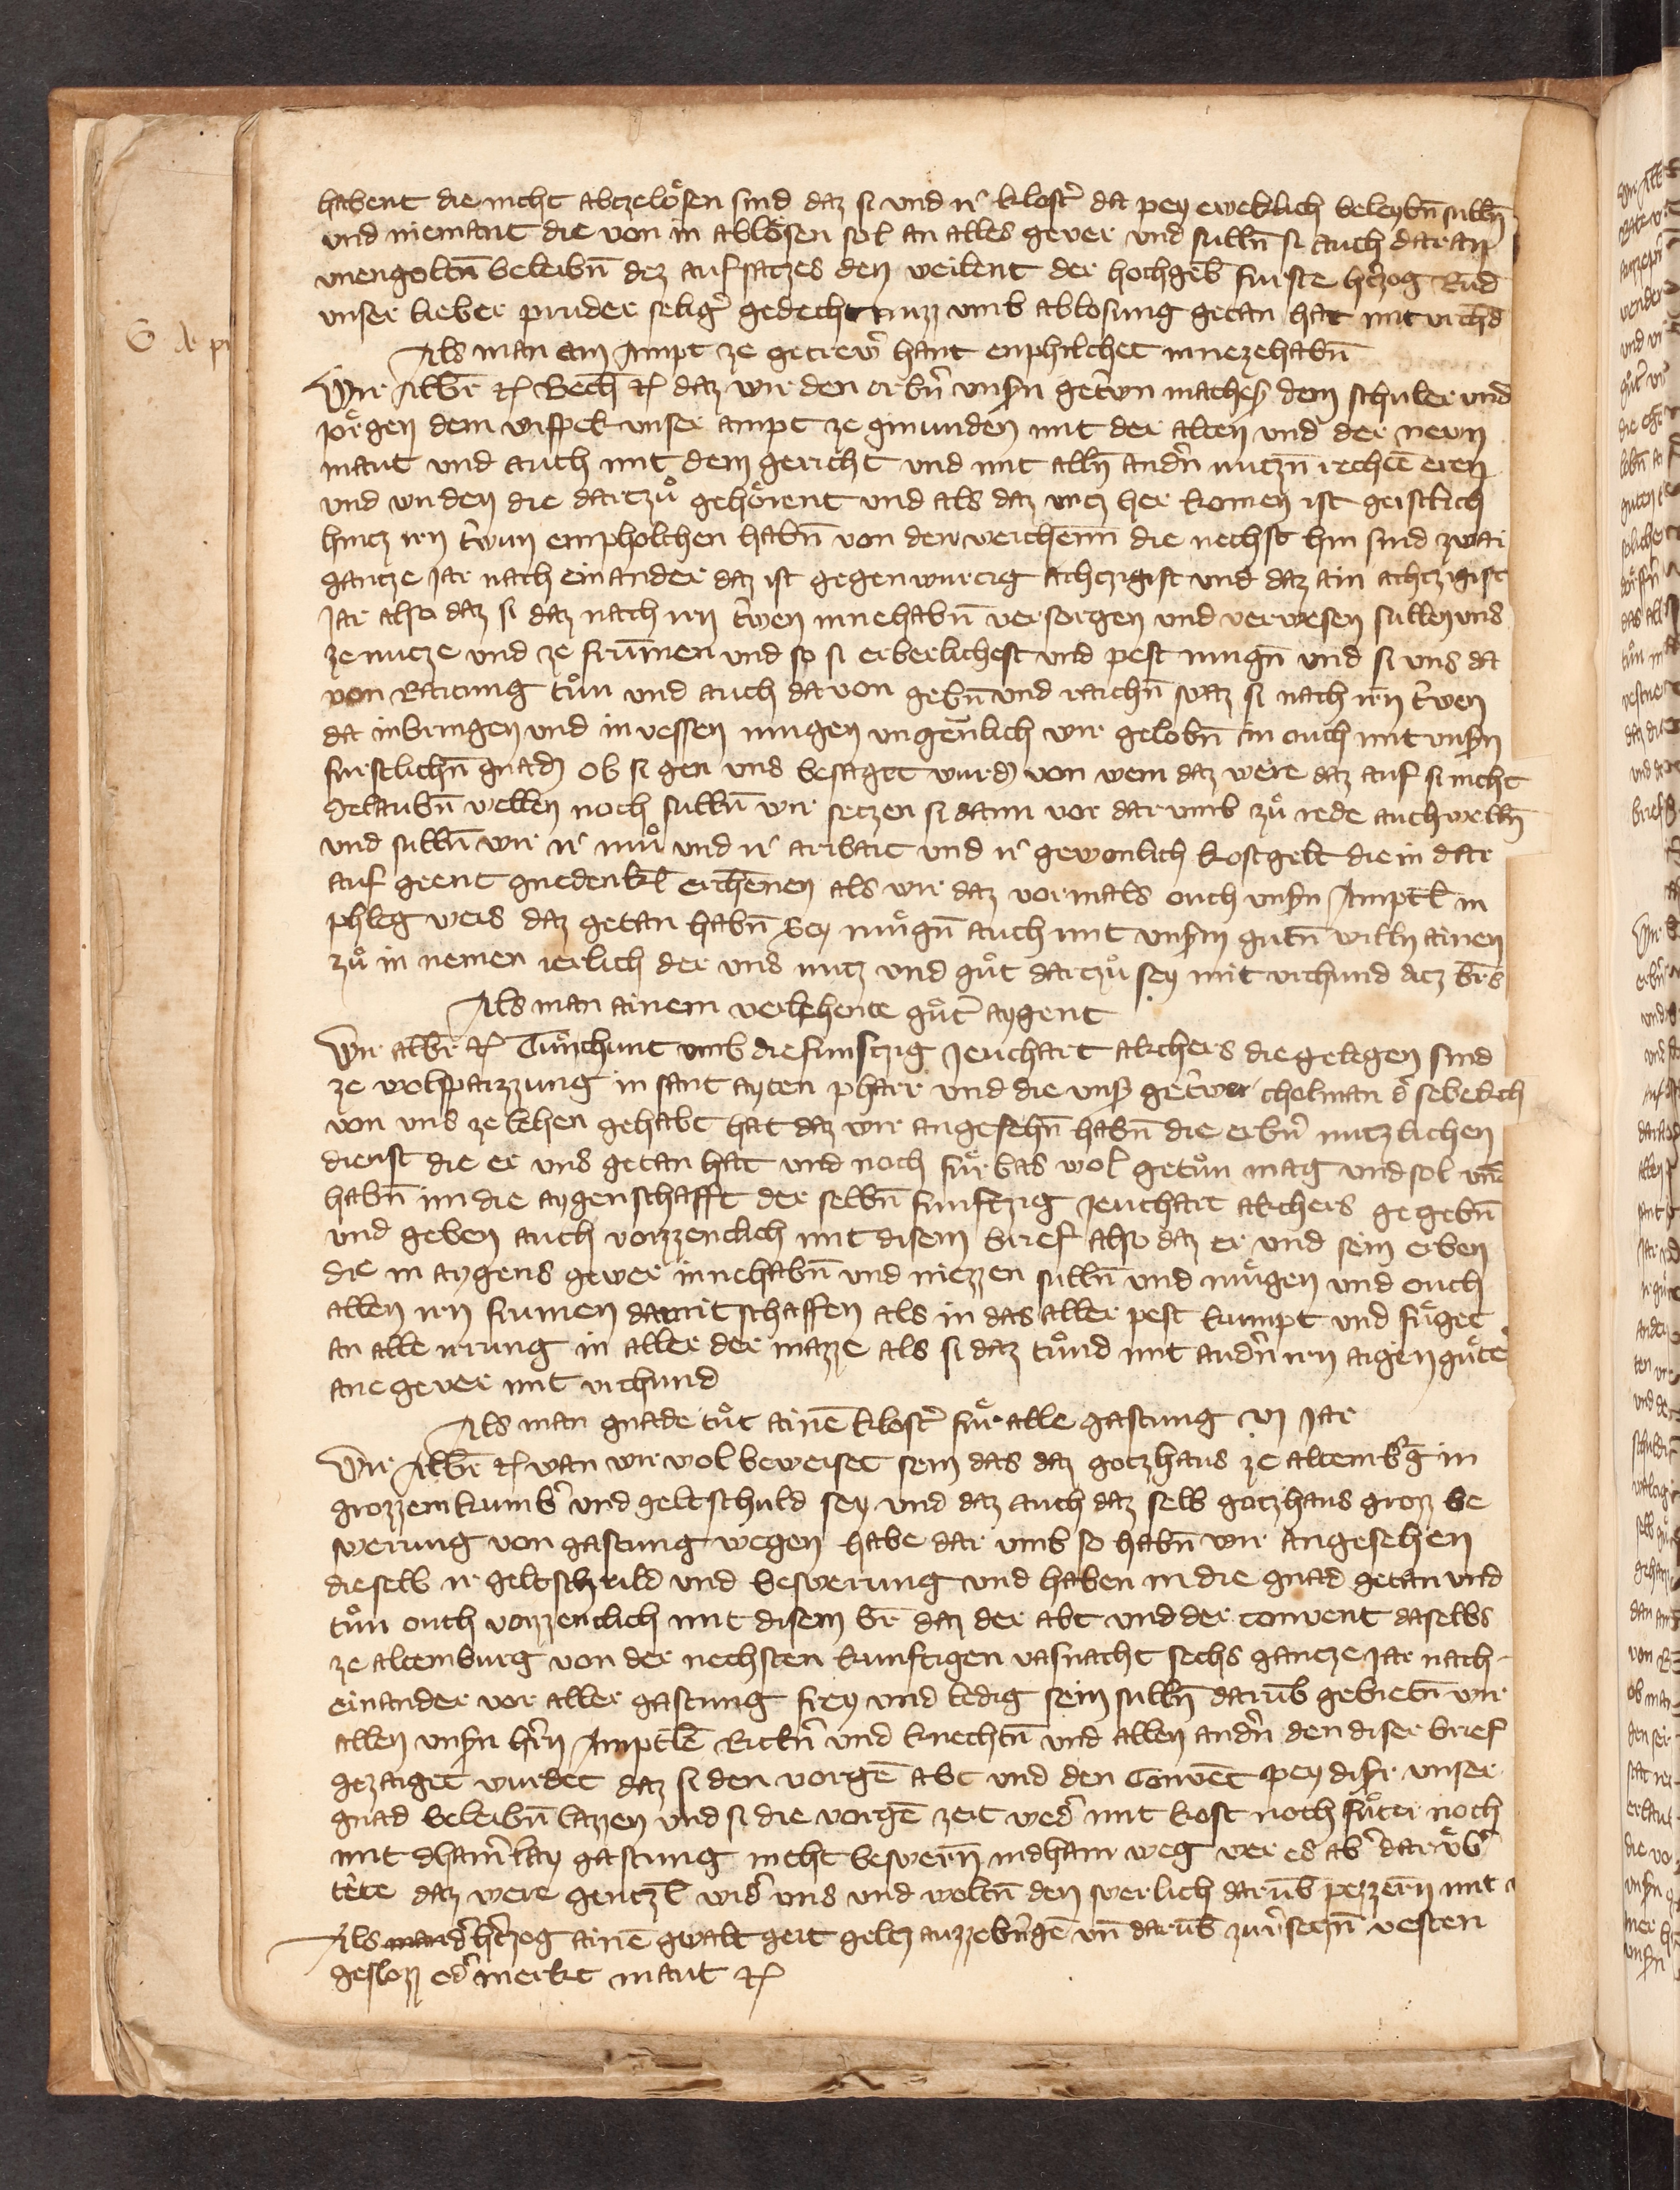 habent die nicht abczelösen sind daz si und ir klostr̄ da pey eweklich beleybn̄ sulln̄
und niemant die von in ablösen sol an alles gever und sulln̄ si auch daran
unengoltn̄ beleibn̄ dez aufsatzes den weilent der hochgeb̄ furste hr̄czog Rud
unser lieber pruder seligr̄ gedechtnuzz umb ablosung getan hat mit vrchd
Als man ein Ampt ze getrewr̄ hant enphilchet innezehabn̄
Wir Albr̄ ꝛc Bech̄ ꝛc daz wir den erbn̄ unsn̄ getrewn mathesz dem schuler und
Jörgen dem wispek unser ampt ze gmunden mit der alten und der newn
maut und auch mit dem gericht und mit alln̄ andn̄ nutzn̄ rechtē eren
und wirden die dartzů gehörent und als daz untz her komen ist geistlich
hintz irn trewn empholhen habn̄ von den weichennn̄ die nechst hin sind zwai
gantze Jar nach einander daz ist gegenwurtig achczigist und daz ain achczigist
Jar also daz si daz nach irn trewen innehabn̄ versorgen und verwesen sullen uns
ze nutze und ze frūmen und so si erberlichest und pest mugn̄ und si uns da
von Raitung tůn und auch davon gebn̄ und raichn̄ swaz si nach irn trewen
da inbringen und invessen mugen ungeūlich wir gelobn̄ in ouch mit unsn̄
furstlichn̄ gnadn̄ ob si gen uns besaget wurdn̄ von wem daz were daz auf si nicht
gelaubn̄ wellen noch sulln̄ wir setzen si dann vor darumb zů rede auch welln̄
und sulln̄ wir ir mů und ir aribait und ir gewonlich kostgelt die in dar
auf geent gnedenkl̄ erchēnen als wir daz vormals ouch unsn̄ Amptl̄ in
phleg weis daz getan habn̄ Sey mugn̄ auch mit unsm̄ gutn̄ willn ainen
zů in nemen ierlich der uns nutz und gůt dartzů sey mit vrchund ditz brs̄
Als man ainem verlehente gůtr̄ aygent
Wir albr̄ ꝛc Tůn chunt umb die funftzig Jeuchart akchers die gelegen sind
ze wolfparzzung in sant ayten pharr und die uns̄ getrewr cholman dr̄ sebekch
von uns ze lehen gehabt hat daz wir angesehn̄ habn̄ die erbn̄ nutzlichen
dienst die er uns getan hat und noch fur̊bas wol getůn mag und sol und
habn̄ im die aygenschafft der selbn̄ funftzig Jeuchart akchers gegebn̄
und geben auch wizzenclich mit disem brief also daz er und sein erben
die in aygens gewer innehabn̄ und niezzen sulln̄ und můgen und ouch
allen irn frumen damit schaffen als in das aller pest kumpt und fůget
an alle irrung in aller der mazze als si daz tůnd mit andn̄ irn aigen gůte
ane gever mit vrchund
Als man gnade tůt ainē klostr̄ fůr alle gastung vj Jar
Wir Albr̄ ꝛc wan wir wol beweiset sein das daz gotzhaus ze altembr̄g in
grozzem kumbr̄ und geltschuld sey und daz auch daz selb gotzhaus grozz be
swerung von gastung wegen habe darumb so habn̄ wir angesehen
dieselb ir geltschuld und beswerung und haben in die gnad getan und
tůn ouch wizzenclich mit disem br̄ daz der abt und der convent daselbs
ze altemburg von der nechsten kunftigen vasnacht sechs gantze Jar nach-
einander vor aller gastung frey und ledig sein sulln̄ darūb gebietn̄ wir
allen unsn̄ hr̄n Amptl̄ē Rittn̄ und knechtn̄ und allen andn̄ den diser brief
gezaiget wurdet daz si den vorgē abt und den Convēt pey disr̄ unser
gnad beleibn̄ lazzen und si die vorgē zeit wedr̄ mit kost noch fůter noch
mit dhainr̄lay gastung nicht beswern̄ indhain weg wer es abr̄ darůbr̄
tête daz were gentzl̄ widr̄ uns und woltn̄ den swerlich darūb pezzern̄ mit
Als dr̄ hr̄czog ainē gwalt geit geltz auzzebr̄ngē un̄ darūb zuvr̄setzn̄ vesten
geslozz odr̄ merkt maut ꝛc